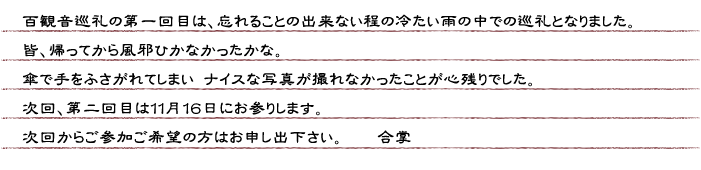 百観音巡礼の第一回目は、忘れることの出来ない程の冷たい雨の中での巡礼となりました。
皆、帰ってから風邪ひかなかったかな。
傘で手をふさがれてしまい ナイスな写真が撮れなかったことが心残りでした。
次回、第二回目は11月16日にお参りします。
次回からご参加ご希望の方はお申し出下さい。　　合掌